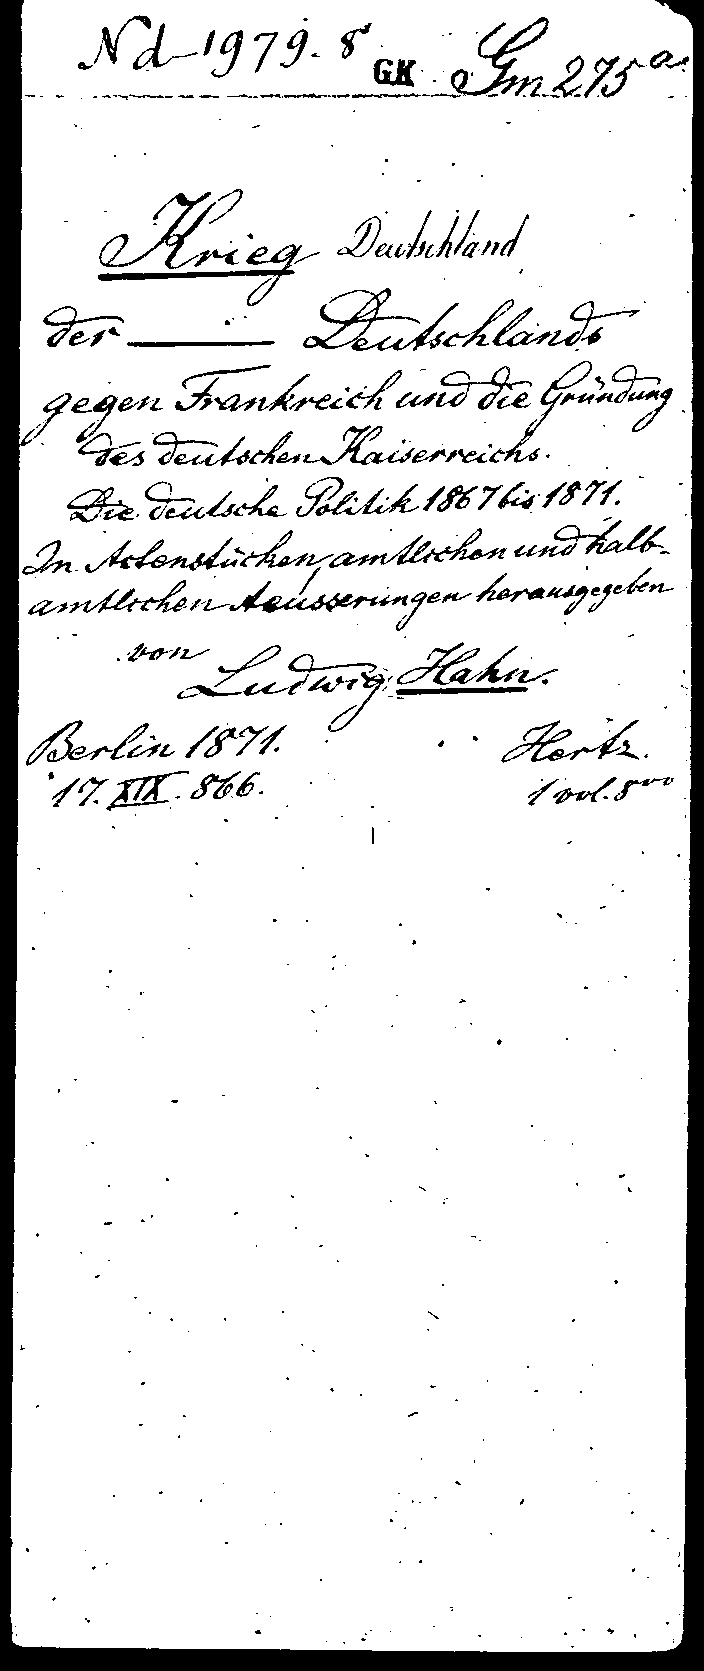 Nd-1979.8° GK Gm 275 a.
Krieg Deutschland
der ——— Deutschlands
gegen Frankreich und die Gründung
des deutschen Kaiserreichs.
Die deutsche Politik 1867 bis 1871.
In Actenstücken, amtlichen und halb-
amtlichen Aeusserungen herausgegeben
von
Ludwig Hahn.
Berlin 1871. Hertz.
17. XIX. 866. 1 vol. 8vo